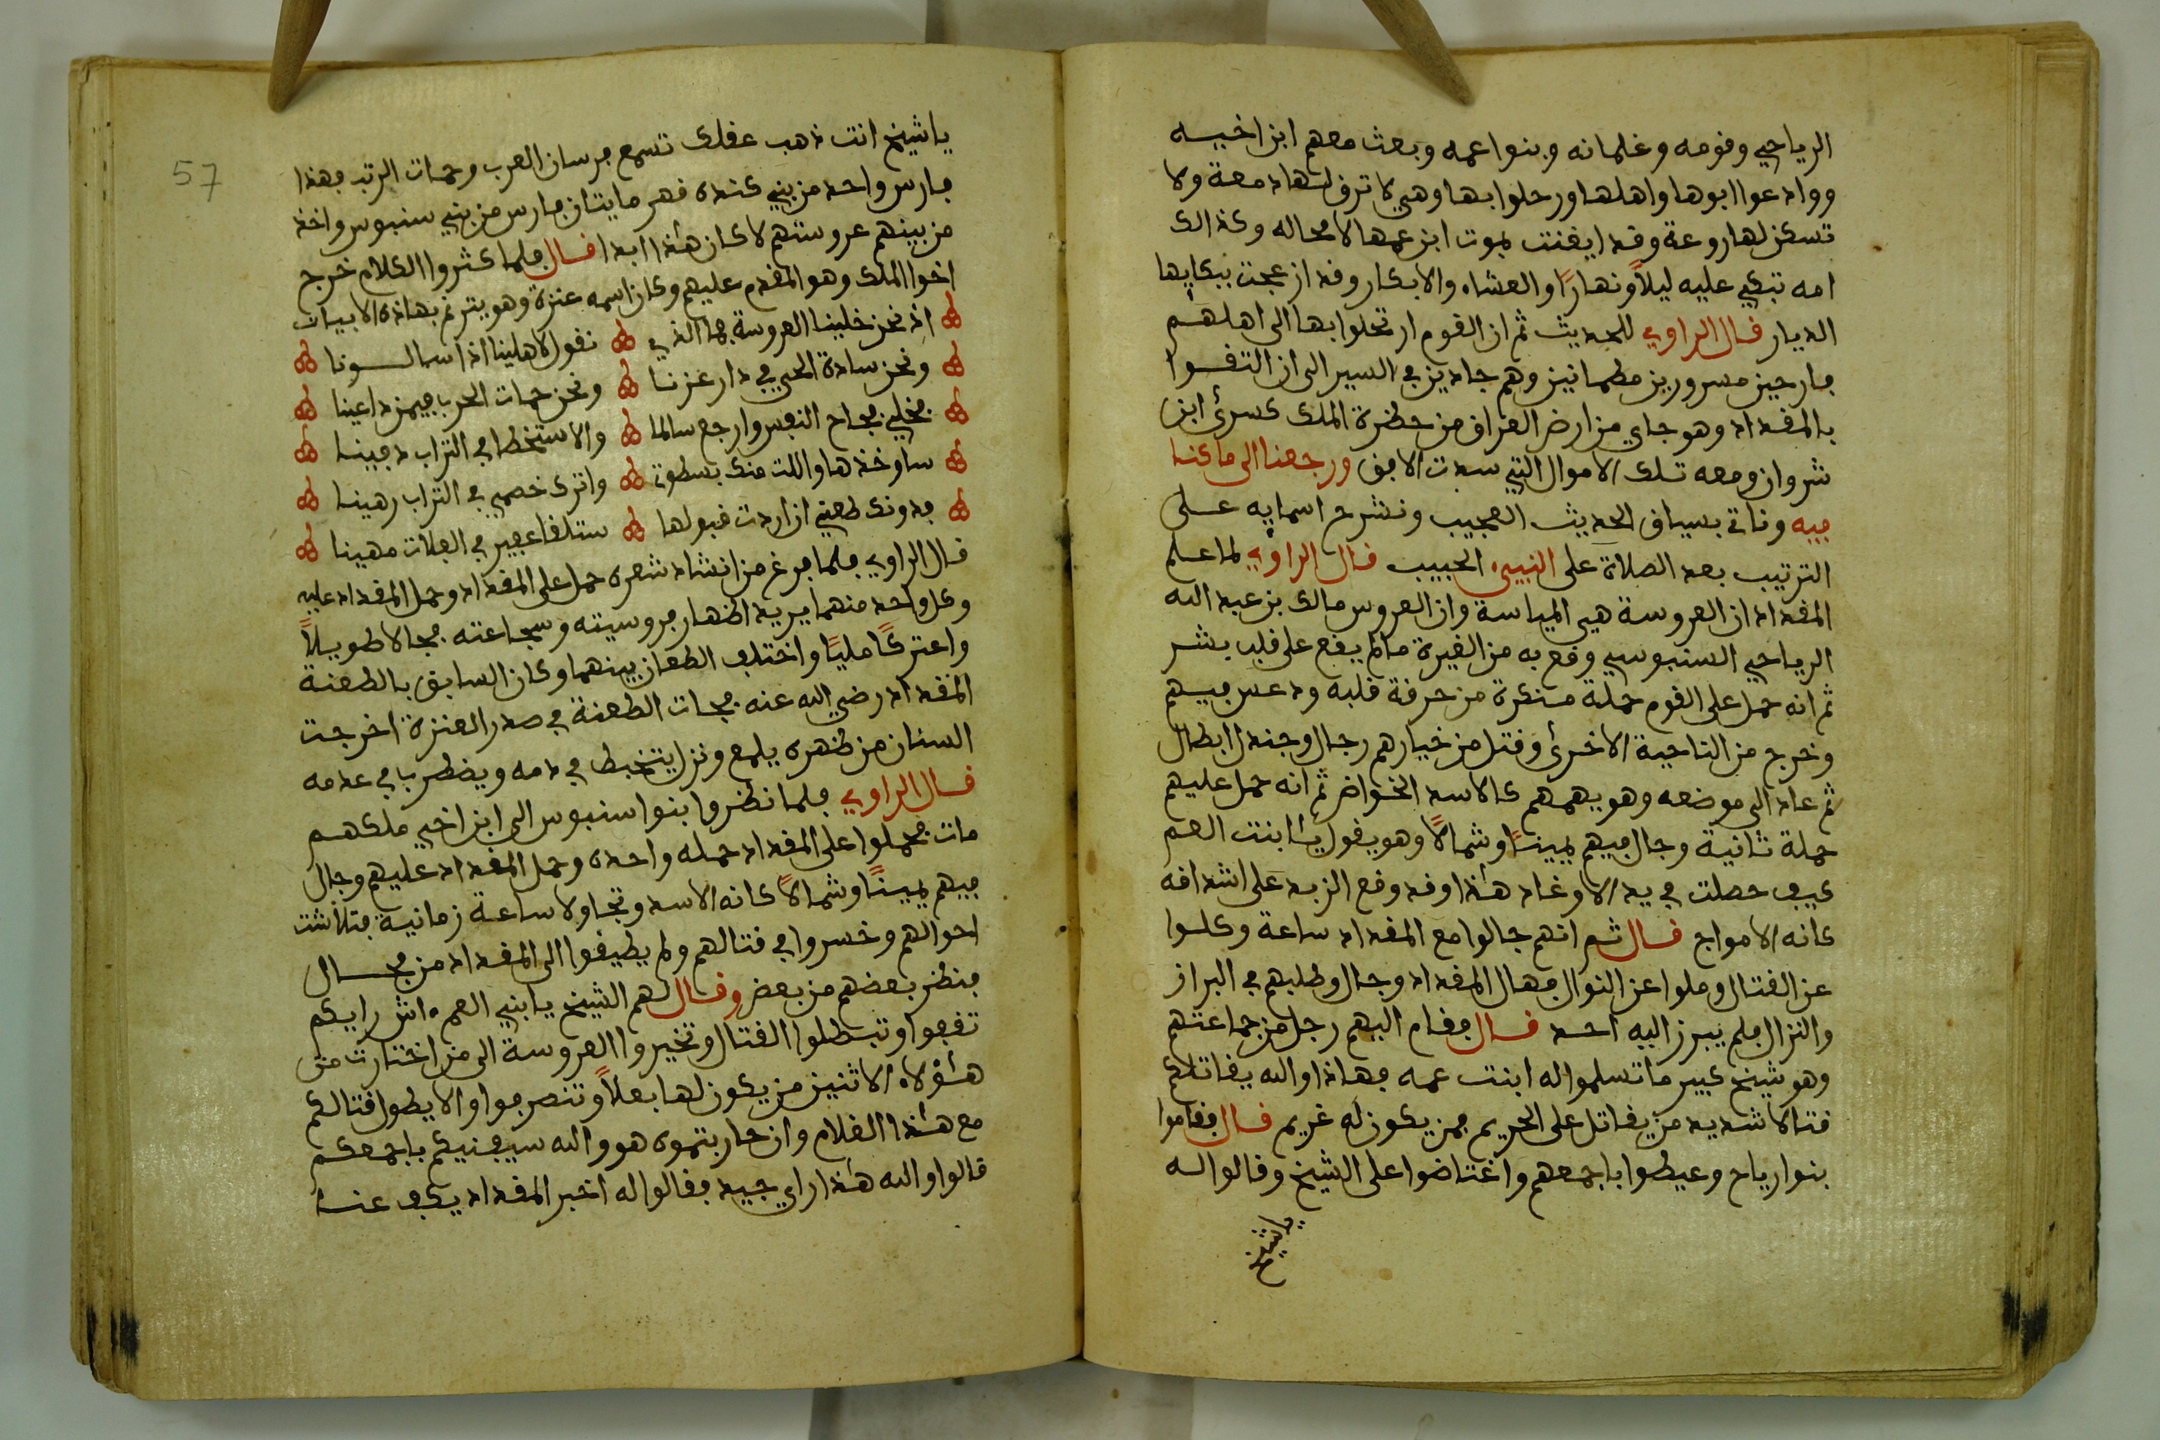 الرياحي وقومه وغلمانه وبنوا عمه وبعث معهم ابن اخيه
ووادعوا ابوها واهلها ورحلوا بها وهي لا ترق لها دمعة ولا
تسكن لها روعة وقد ايقنت بموت ابن عمها لا محاله وكذالك
امه تبكي عليه ليلاً ونهارًا والعشاء والابكار وقد ازعجت ببكايها
الديار قال الراوي للحديث ثم ان القوم ارتحلوا بها الى اهلهم
فارحين مسرورين مطمانين وهم جادين في السير الى ان التقوا
بالمقداد وهو جاي من ارض العراق من حظرة الملك كسرى ابن
شروان ومعه تلك الاموال التي سدت الافق ورجعنا الى ما كنا
فيه وناتي بسياق الحديث العجيب ونشرح اسمايه على
الترتيب بعد الصلاة على النبيء الحبيب قال الراوي لما علم
المقداد ان العروسة هي المياسة وان العروس مالك بن عبد الله
الرياحي السنبوسي وقع به من الغيرة ما لم يقع على قلب بشر
ثم انه حمل على القوم حملة منكرة من حرقة قلبه ودعس فيهم
وخرج من الناحية الاخرى وقتل من خيارهم رجال وجندل ابطال
ثم عاد الى موضعه وهو يهمهم كالاسد الخواض ثم انه حمل عليهم
حملة ثانية وجال فيهم يمينًا وشمالاً وهو يقول يا ابنت العم
كيف حصلت في يد الاوغاد هذا وقد وقع الزبد على اشداقه
كانه الامواج قال ثم انهم جالوا مع المقداد ساعة وكلوا
عن القتال وملوا عن النوال فهال المقداد وجال وطلبهم في البراز
والنزال فلم يبرز اليه احد قال فقام اليهم رجل من جماعتهم
وهو شيخ كبير ما تسلموا له ابنت عمه فهاذا والله يقاتلكم
قتالا شديد من يقاتل على الحريم فمن يكون له غريم قال فقاموا
بنوا رياح وعيطوا باجمعهم واغتاضوا على الشيخ وقالوا له
يا شيخ
57
يا شيخ انت ذهب عقلك تسمع فرسان العرب وحمات الرتب فهذا
فارس واحد من بني كندة قهر مايتان فارس من بني سنبوس واخذ
من بينهم عروستهم لا كان هذا ابدا قال فلما كثروا الكلام خرج
اخوا الملك وهو المقدم عليهم وكان اسمه عنزة وهو يترنم بهاذه الابيات
اذ نحن خلينا العروسة فما الذي نقول لاهلينا اذا سالونا
ونحن سادة الحي في دار عزنا ونحن حمات الحرب فيمن داعينا
فخلي فجاح النفس وارجع سالما والا ستخطا في التراب دفينا
ساوخذها واللت منك بسطوة واترك خصمي في التراب رهينا
فدونك طعني ان اردت قبولها ستلقا عفير في الفلات مهينا
قال الراوي فلما فرغ من انشاد شعره حمل على المقداد وحمل المقداد عليه
وكل واحد منهما يريد اظهار فروسيته وسجاعته فجالا طويلاً
واعتركا مليًا واختلف الطعان بينهما وكان السابق بالطعنة
المقداد رضي الله عنه فجات الطعنة في صدر العنزة اخرجت
السنان من ظهره يلمع ونزل يتخبط في دمه ويضطرب في عدمه
قال الراوي فلما نظروا بنوا سنبوس الى ابن اخي ملكهم
مات فحملوا على المقداد حمله واحده وحمل المقداد عليهم وجال
فيهم يمينًا وشمالاً كانه الاسد وتجاولا ساعة زمانية فتلاشت
احوالهم وخسروا في قتالهم ولم يطيقوا الى المقداد من مجال
فنظر بعضهم من بعض وقال لهم الشيخ يا بني العم اش رايكم
تقفوا وتبطلوا القتال وتخيروا العروسة الى من اختارت من
هؤلاء الاثنين من يكون لها بعلاً وتنصرفوا والا يطول قتالكم
مع هذا الغلام وان حاربتموه هو والله سيفنيكم باجمعكم
قالوا والله هذا راي جيد فقالوا له اخبر المقداد يكف عنا